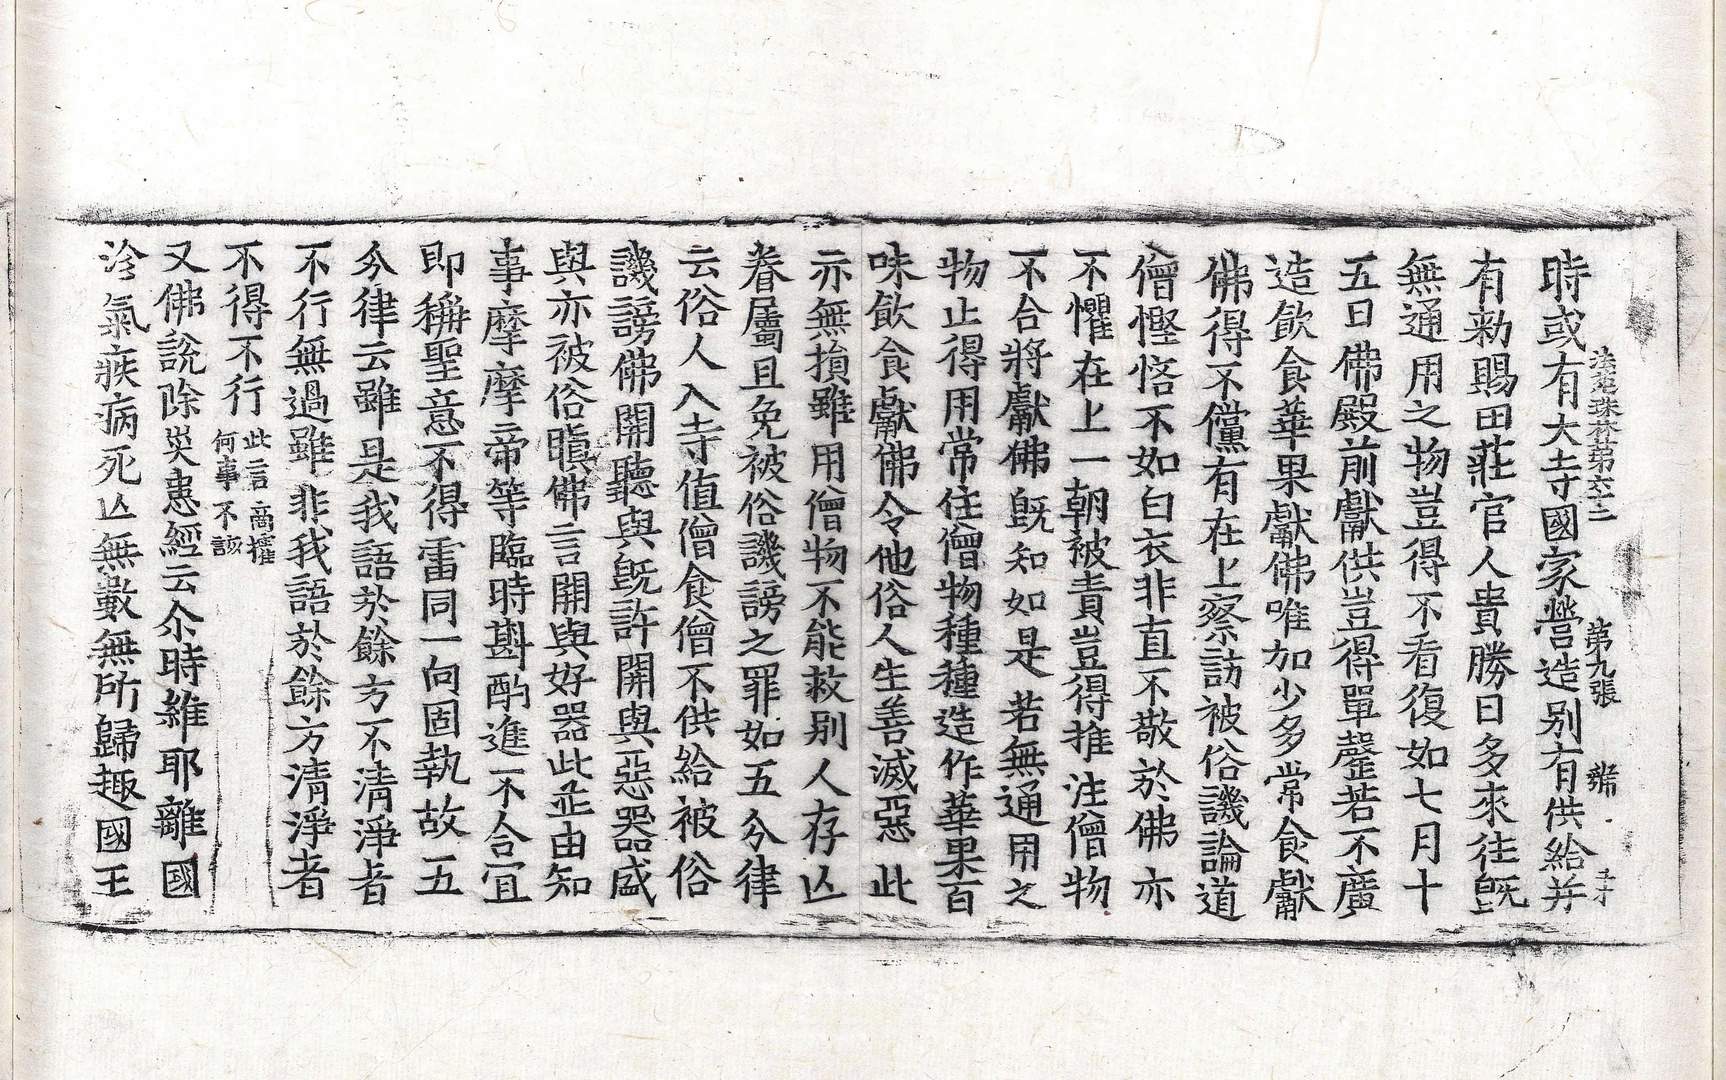 法苑珠林第六十二 第九張
時或有大寺國家營造別有供給并
有勑賜田莊官人貴勝日多來往旣
無通用之物豈得不看復如七月十
五日佛殿前獻供豈得單罄若不廣
造飮食華果獻佛唯加少多常食獻
佛得不儻有在上察訪被俗譏論道
僧慳悋不如白衣非直不敬於佛亦
不懼在上一朝被責豈得推注僧物
不合將獻佛旣知如是若無通用之
物止得用常住僧物種種造作華果百
味飮食獻佛令他俗人生善滅惡此
亦無損雖用僧物不能救別人存亾
眷屬且免被俗譏謗之罪如五分律
云俗人入寺值僧食僧不供給被俗
譏謗佛開聽與旣許開與惡器盛
與亦被俗瞋佛言開與好器此並由知
事摩摩帝等臨時斟酌進不合宜
卽稱聖意不得雷同一向固執故五
分律云雖是我語於餘方不清淨者
不行無過雖非我語於餘方清淨者
不得不行此言商攉何事不該
又佛說除災患經云尒時維耶離國
沴氣疾病死亾無數無所歸趣國王